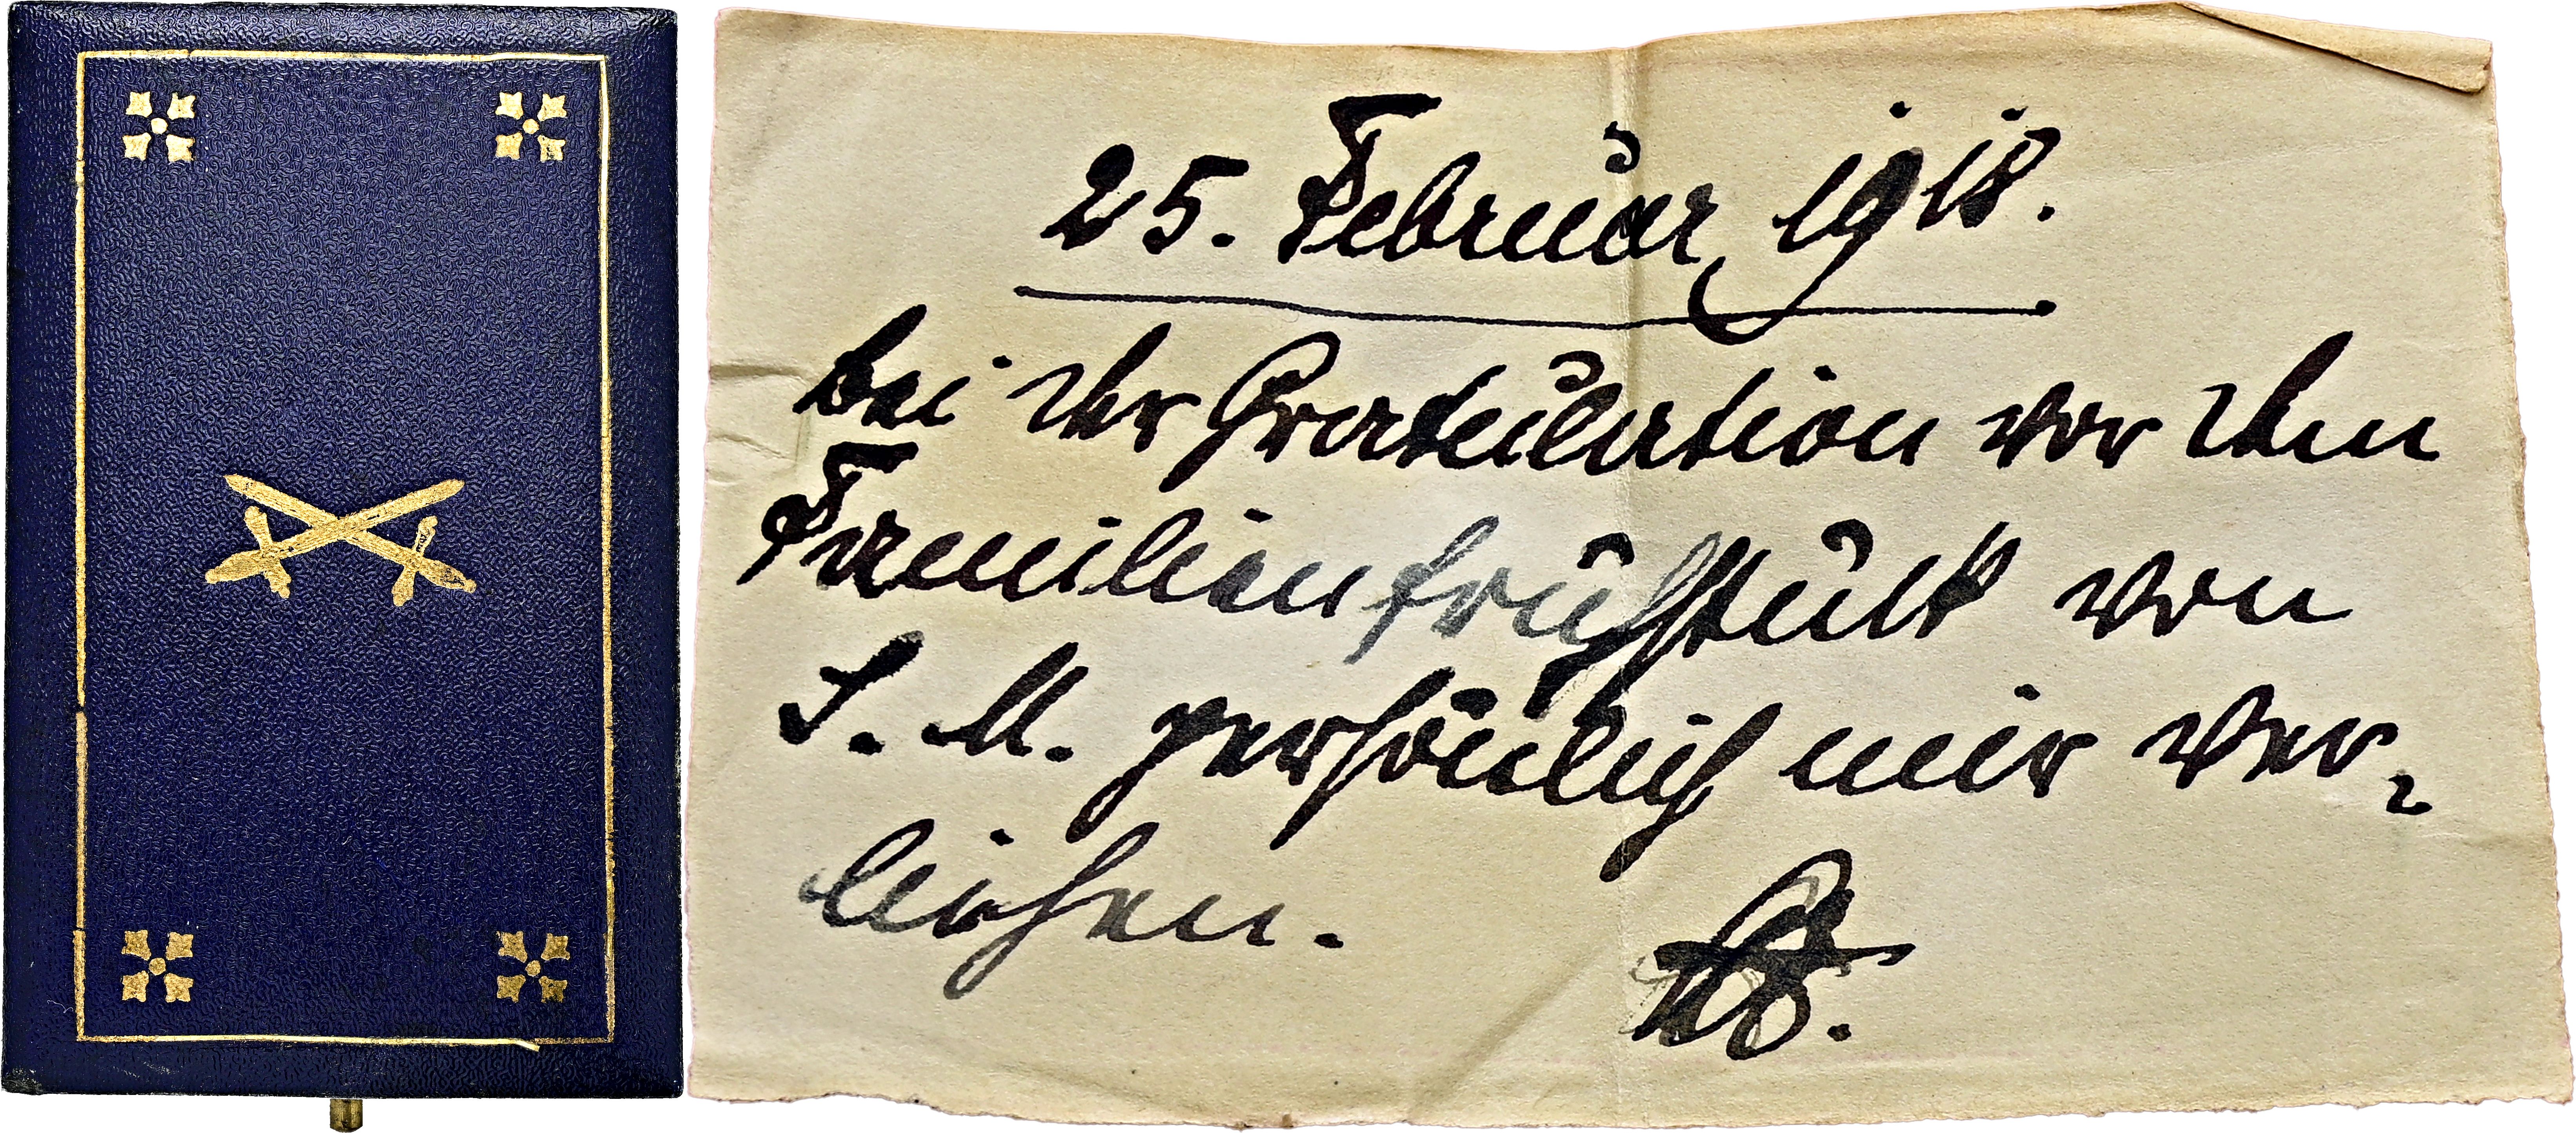 25. Februar 1918.
bei der Gratulation vor dem
Familienfrühstück von
S. M. persönlich mir ver-
liehen.